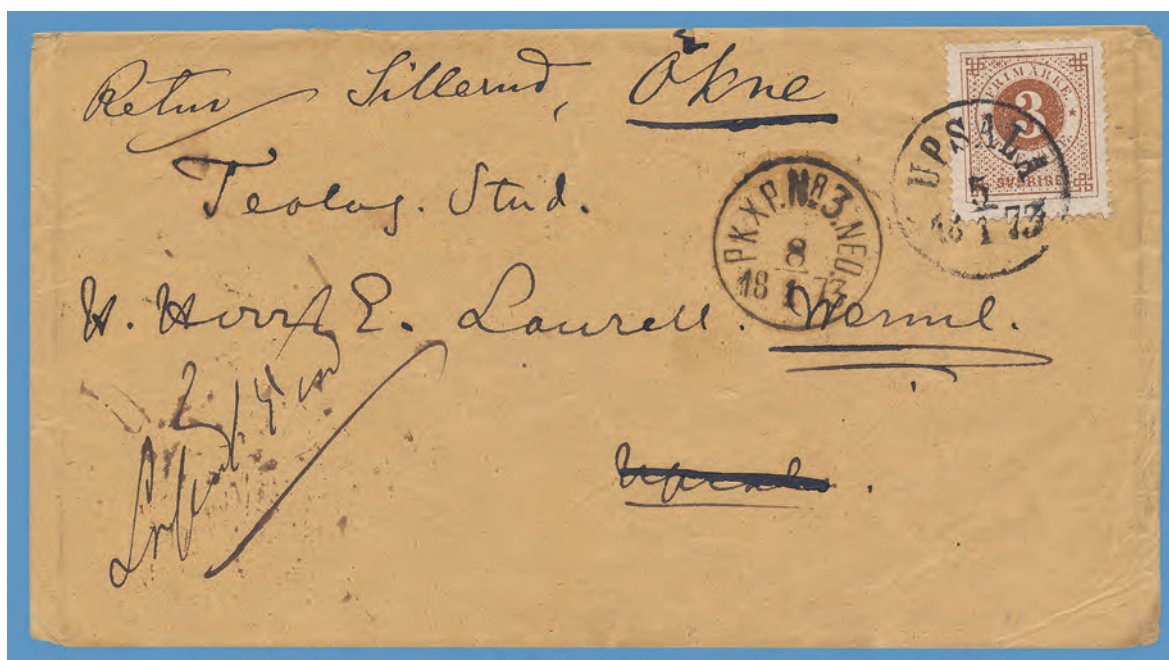 Retur Sillerud, Ökne
Teolog. Stud.
E. Laurell. Werml.
Upsala.
FRIMÄRKE.
3
SVERIGE
UPSALA
5
18 1 73
PKXP. No 3. NED.
8
18 1 73